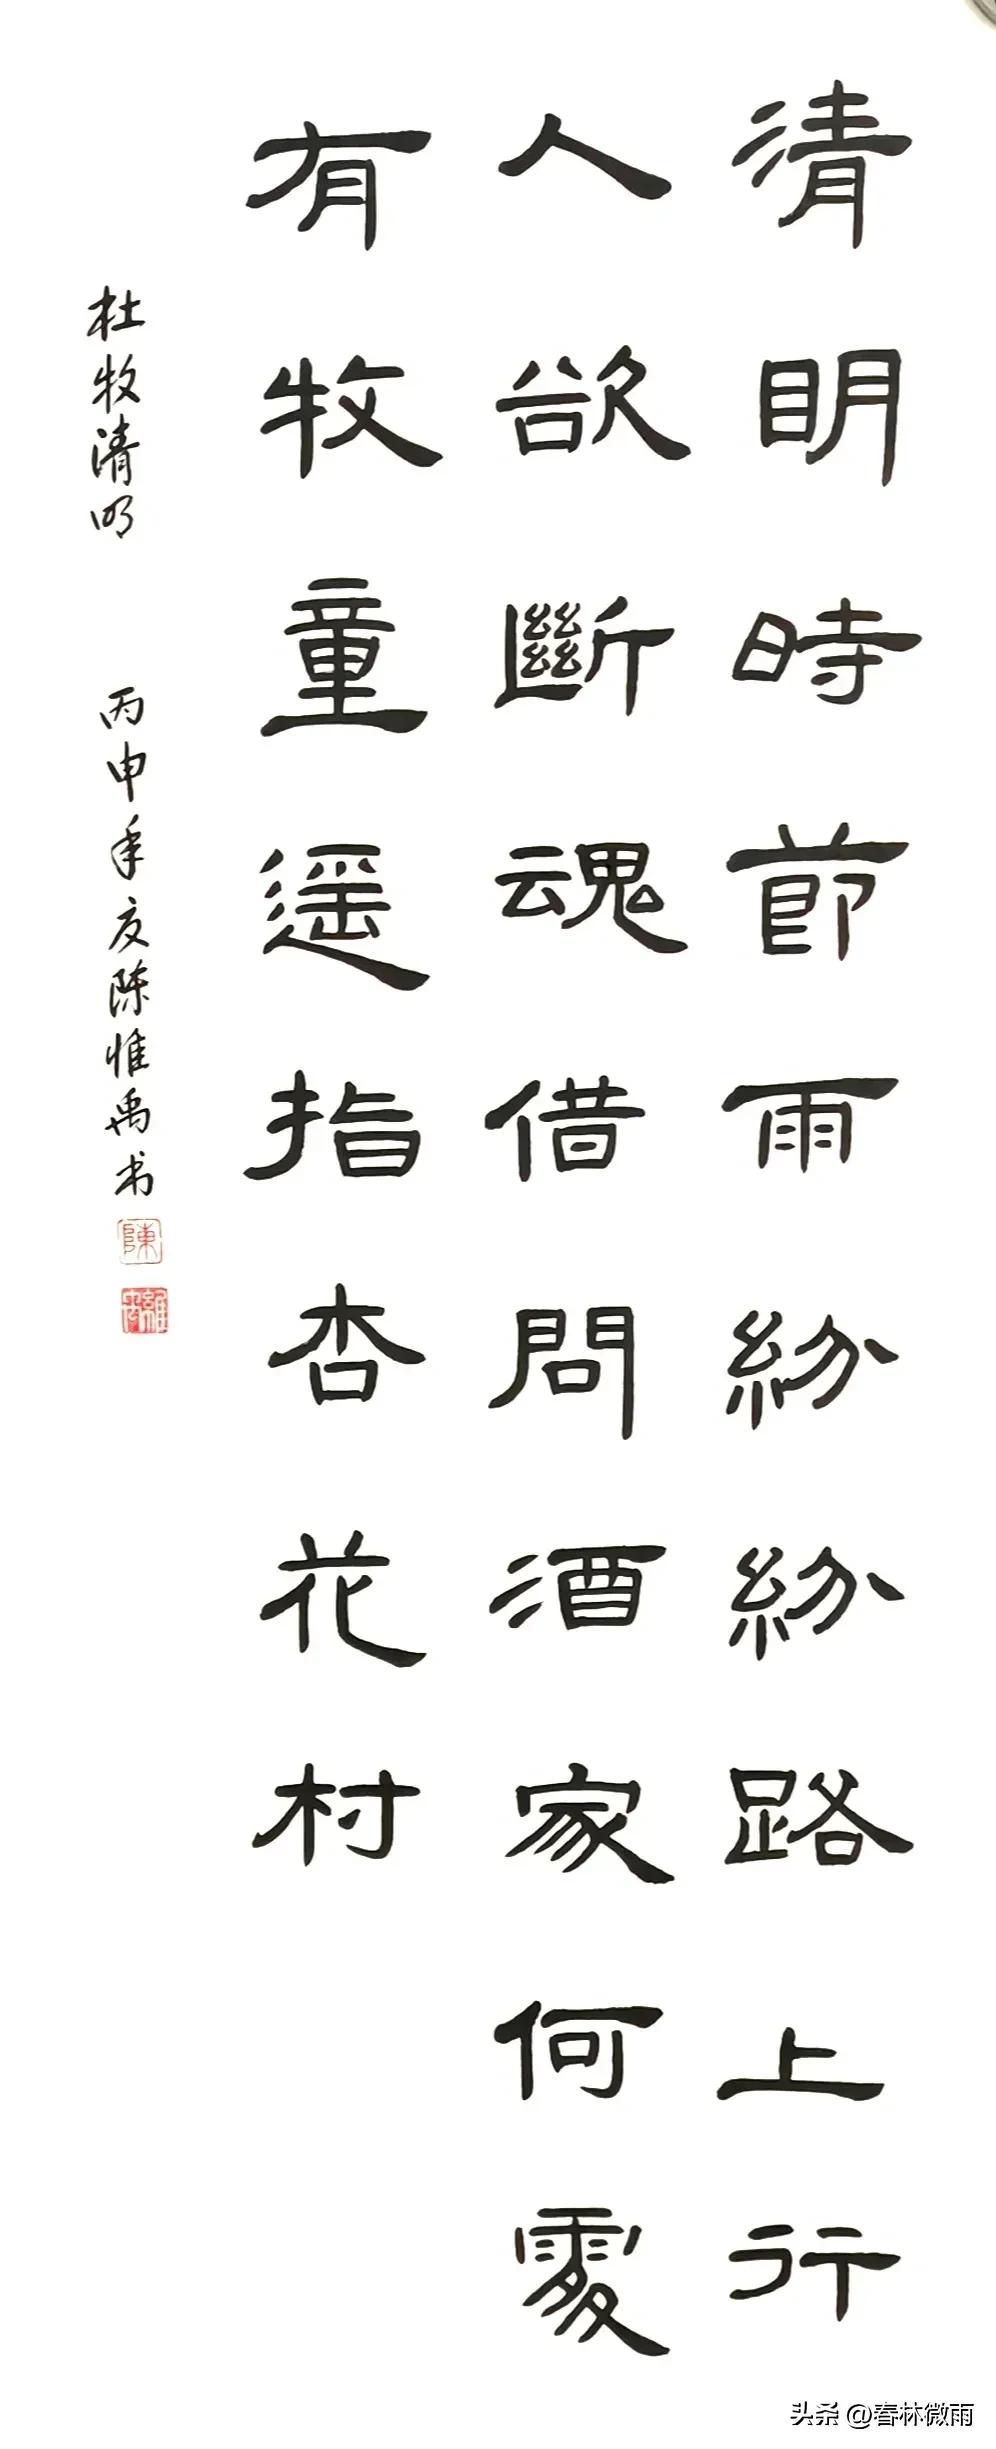 清明時節雨紛紛路上行
人欲斷魂借問酒家何處
有牧童遥指杏花村
杜牧清明 丙申年夏陈惟禹书
陳
頭条 @春林微雨